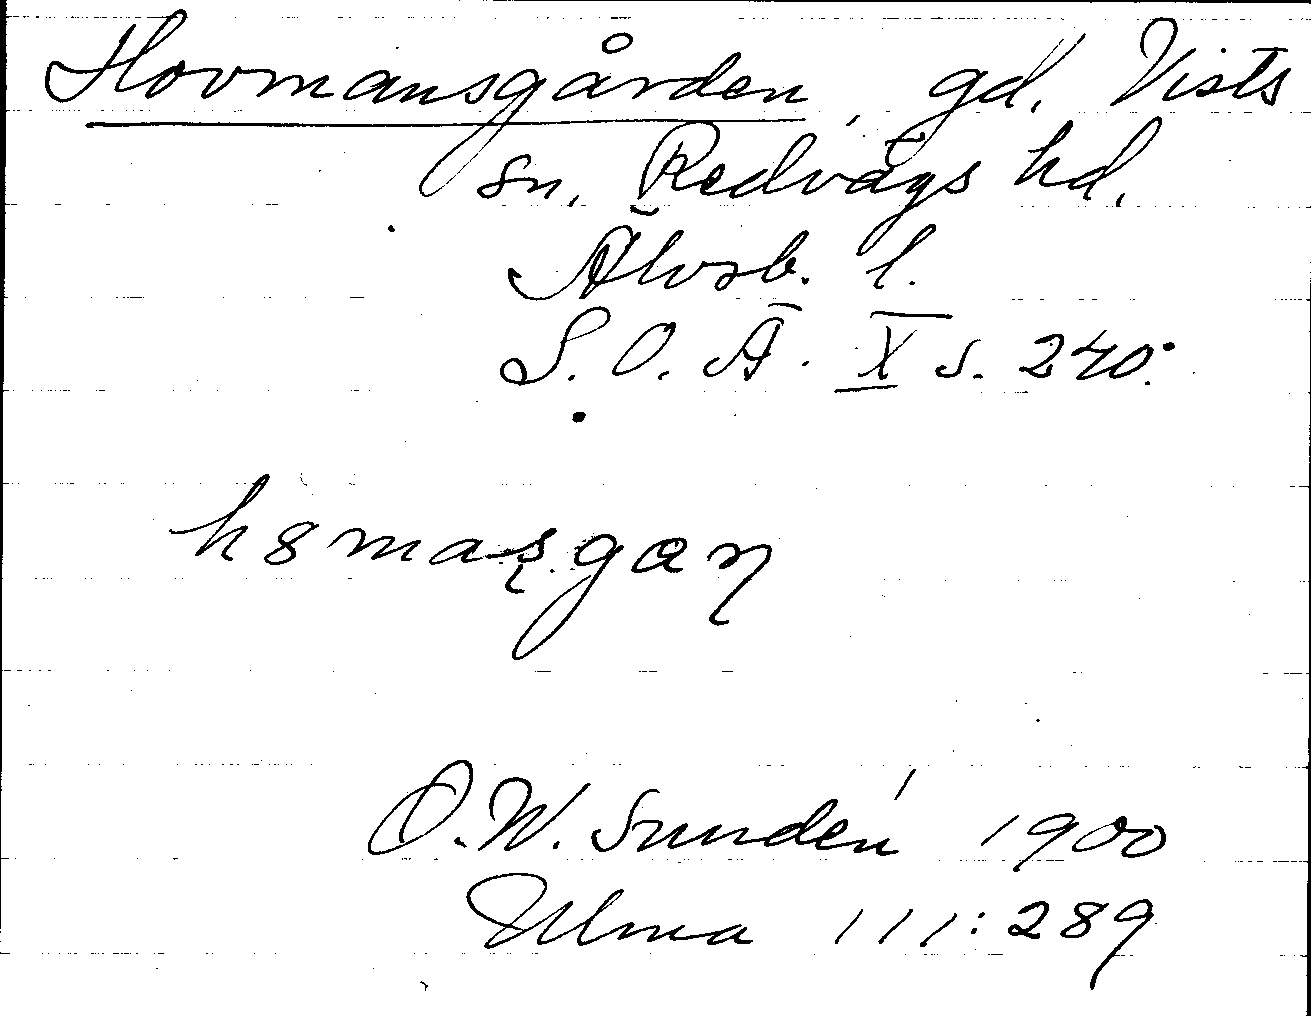 Hovmansgården, gd, Vists
sn, Redvägs hd,
Älvsb. l.
S. O. Ä. X s. 240.
h8maʂgaɳ
O.W. Sundén 1900
Ulma 111:289